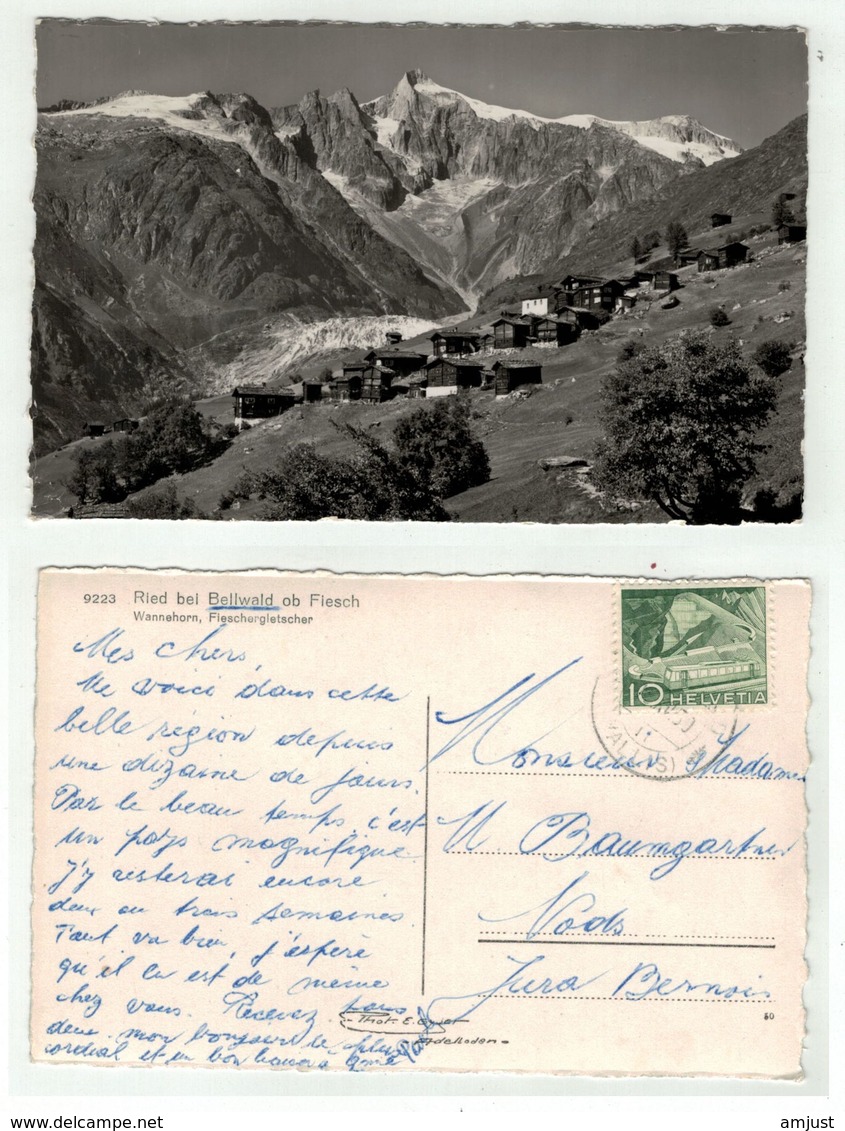 9223 Ried bei Bellwald ob Fiesch
Wannehorn, Fieschergletscher
Mes chers,
Me voici dans cette
belle région depuis
une dizaine de jours.
Par le beau temps c'est
un pays magnifique
J'y resterai encore
deux ou trois semaines.
Tout va bien, j'espère
qu'il en est de même
chez vous. Recevez tous
deux mon bonjour le plus
cordial et un bon baiser à
10 HELVETIA
(VALLIS)
Monsieur Madame
M. Baumgartner
Nods
Jura Bernois
50
Phot. E. Gyger
Adelboden
delcampe.net
amjust